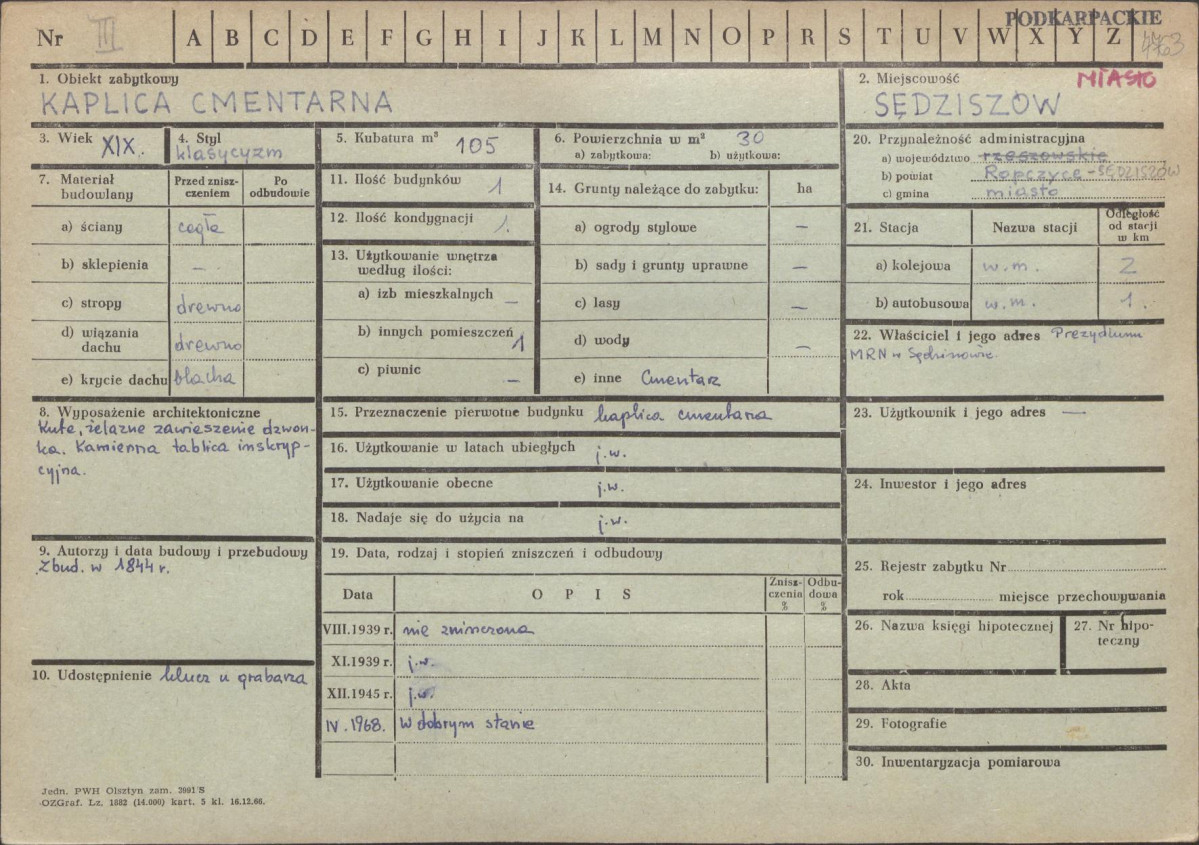 Nr III A B C D E F G H I J K L M N O P R S T U V W X Y Z
PODKARPACKIE
4763
1. Obiekt zabytkowy
KAPLICA CMENTARNA
2. Miejscowość MIASTO
SĘDZISZÓW
3. Wiek XIX.
4. Styl
klasycyzm
5. Kubatura m³ 105
6. Powierzchnia w m² 30
a) zabytkowa: b) użytkowa:
7. Materiał
budowlany
Przed znisz-
czeniem
Po
odbudowie
a) ściany cegła
b) sklepienia –
c) stropy drewno
d) wiązania
dachu drewno
e) krycie dachu blacha
8. Wyposażenie architektoniczne
Kute, żelazne zawieszenie dzwon-
ka. Kamienna tablica inskryp-
cyjna.
9. Autorzy i data budowy i przebudowy
Zbud. w 1844 r.
10. Udostępnienie klucz u grabarza
11. Ilość budynków 1
12. Ilość kondygnacji 1.
13. Użytkowanie wnętrza
według ilości:
a) izb mieszkalnych –
b) innych pomieszczeń 1
c) piwnic –
14. Grunty należące do zabytku: ha
a) ogrody stylowe –
b) sady i grunty uprawne –
c) lasy –
d) wody –
e) inne Cmentarz
15. Przeznaczenie pierwotne budynku kaplica cmentarna
16. Użytkowanie w latach ubiegłych j.w.
17. Użytkowanie obecne j.w.
18. Nadaje się do użycia na j.w.
19. Data, rodzaj i stopień zniszczeń i odbudowy
Data OPIS
Znisz-
czenia
%
Odbu-
dowa
%
VIII.1939 r. nie zniszczona
XI.1939 r. j.w.
XII.1945 r. j.w.
IV.1968. W dobrym stanie
20. Przynależność administracyjna
a) województwo rzeszowskie
b) powiat Ropczyce - SĘDZISZÓW
c) gmina miasto
21. Stacja Nazwa stacji
Odległość
od stacji
w km
a) kolejowa w.m. 2
b) autobusowa w.m. 1.
22. Właściciel i jego adres Prezydium
MRN w Sędziszowie.
23. Użytkownik i jego adres —
24. Inwestor i jego adres
25. Rejestr zabytku Nr
rok miejsce przechowywania
26. Nazwa księgi hipotecznej
27. Nr hipo-
teczny
28. Akta
29. Fotografie
30. Inwentaryzacja pomiarowa
Jedn. PWH Olsztyn zam. 3991 S
OZGraf. Lz. 1882 (14.000) kart. 5 kl. 16.12.66.